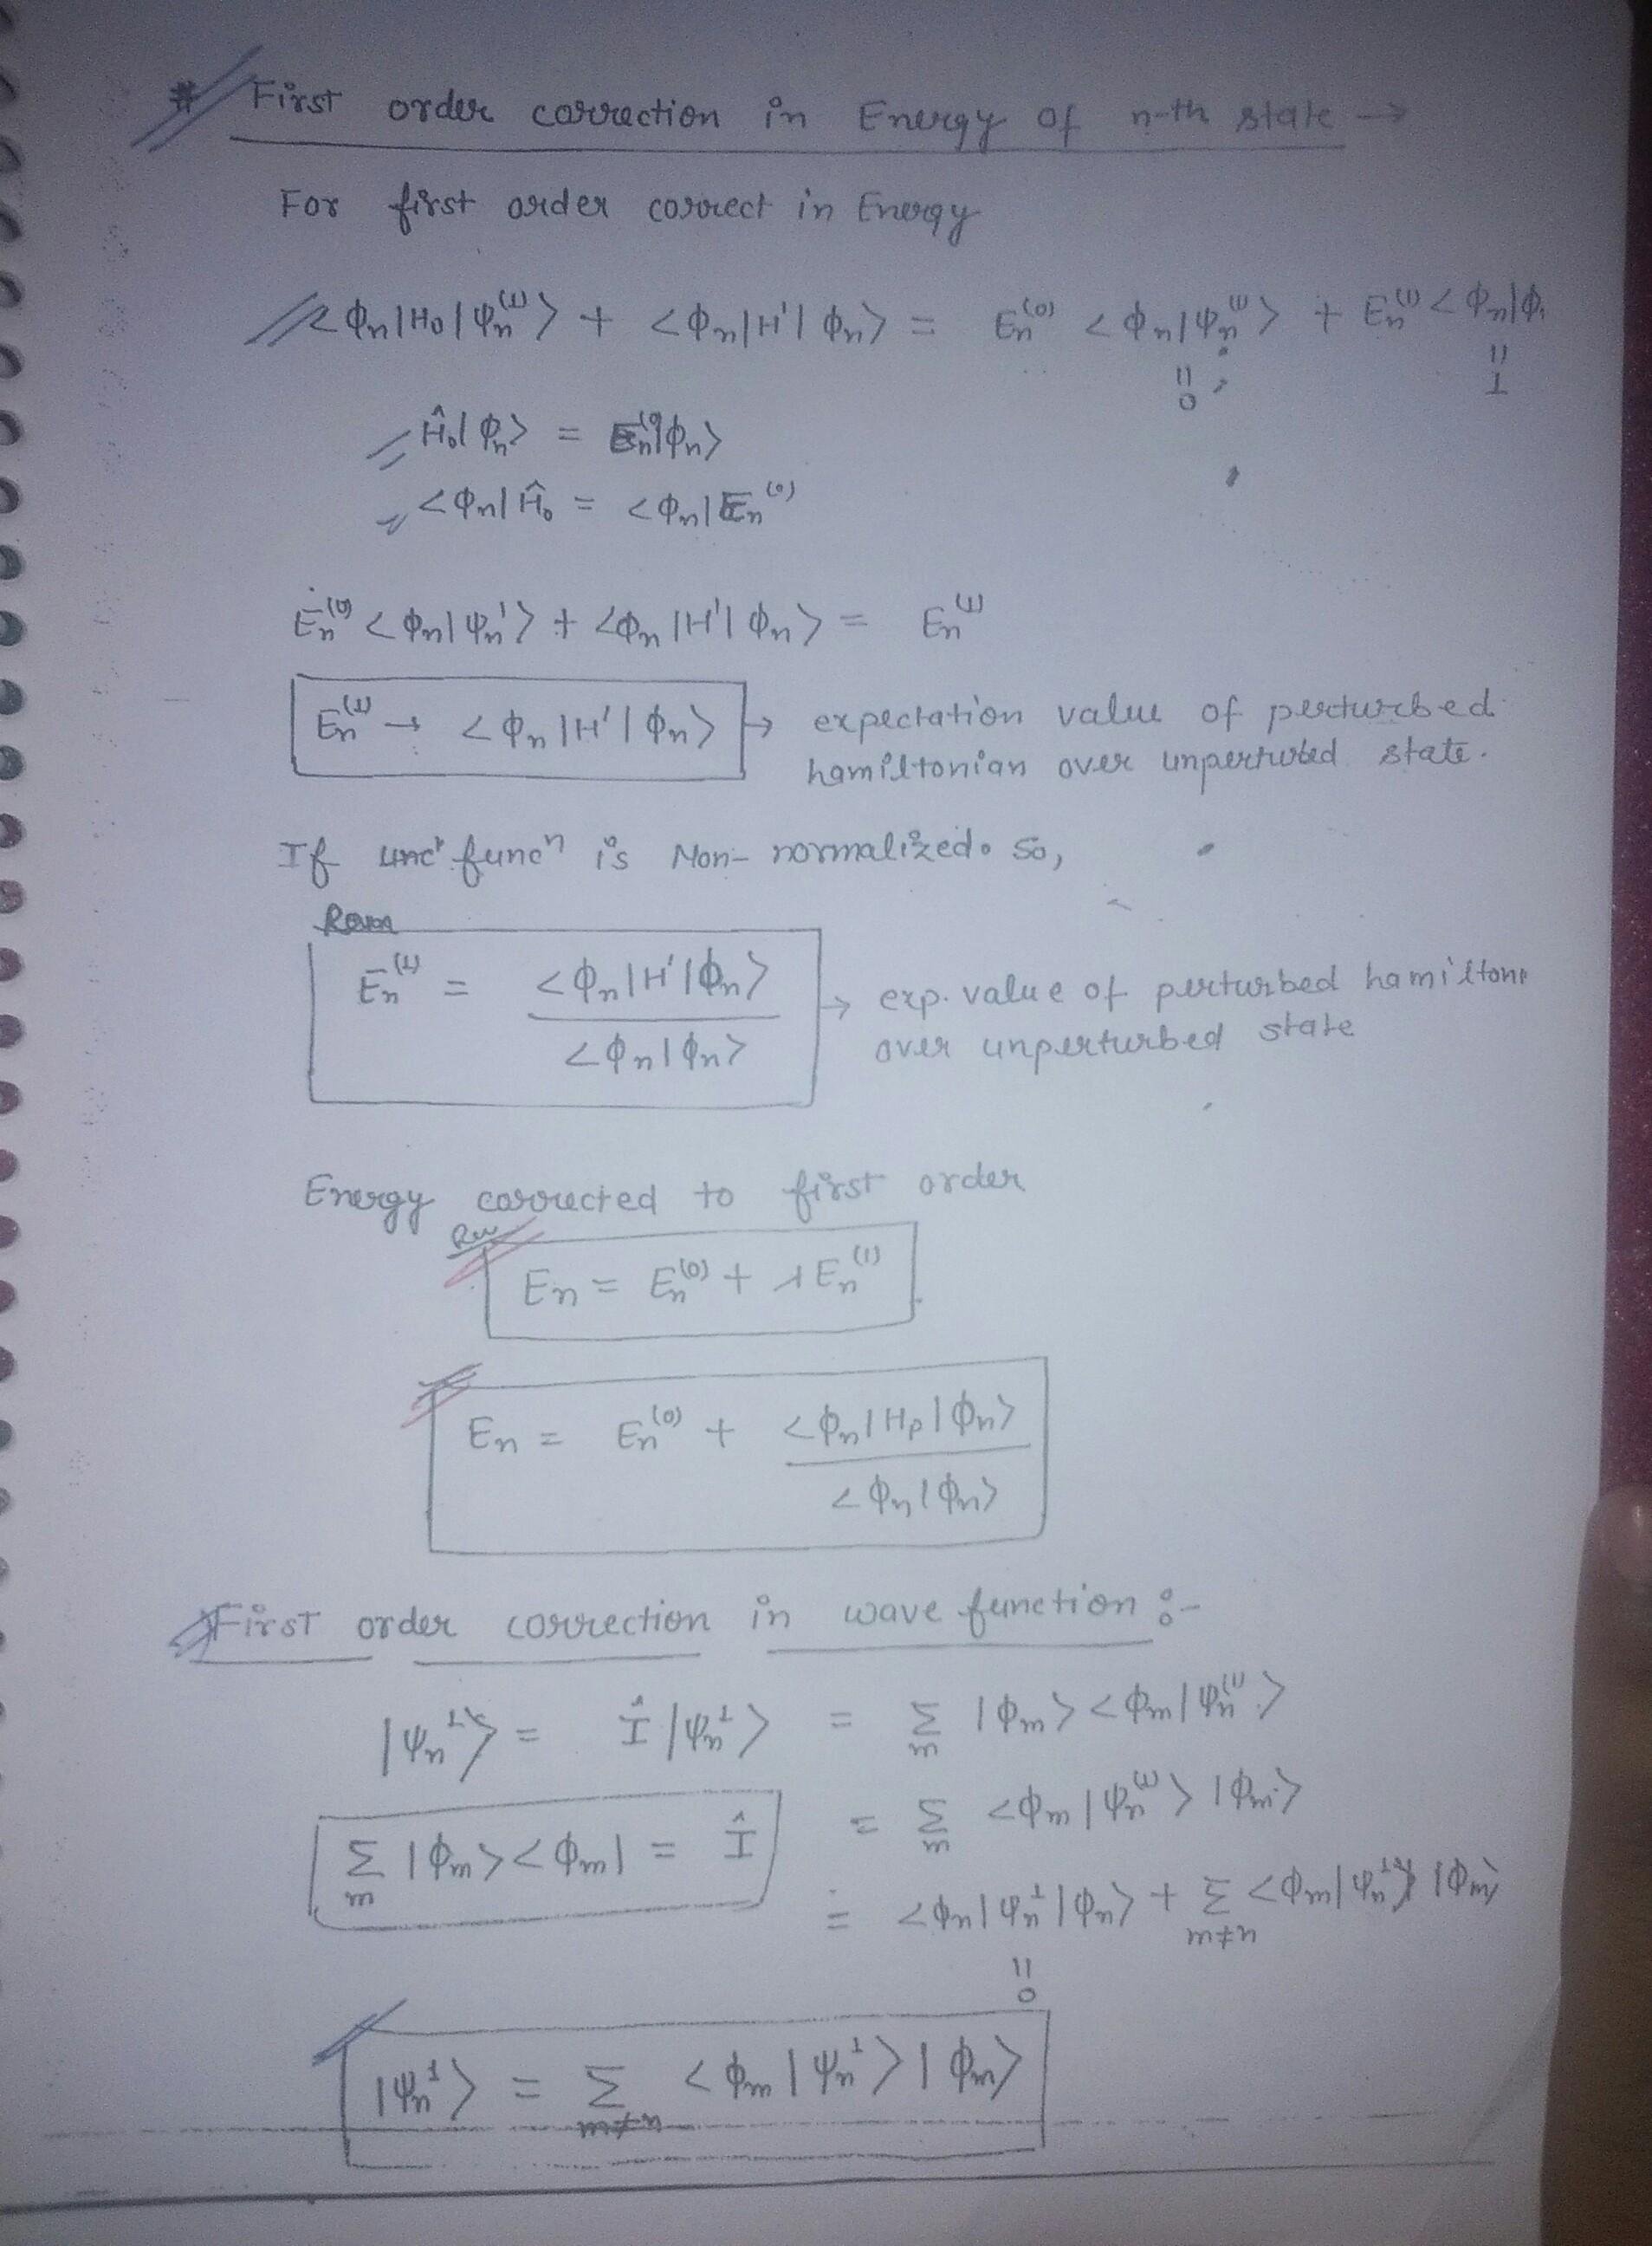 # First order correction in Energy of n-th state →
For first order correct in Energy
<Φn|H0|Ψn^(1)> + <Φn|H'|Φn> = En^(0) <Φn|Ψn^(1)> + En^(1) <Φn|Φ
|| 0
|| 1
Ĥ0|Φn> = En^(0)|Φn>
<Φn|Ĥ0 = <Φn|En^(0)
En^(0) <Φn|Ψn'> + <Φn|H'|Φn> = En^(1)
En^(1) → <Φn|H'|Φn> → expectation value of perturbed
hamiltonian over unperturbed state.
If func^n is Non-normalized. So,
En^(1) = <Φn|H'|Φn> / <Φn|Φn> → exp. value of perturbed hamiltoni
over unperturbed state
Energy corrected to first order
Rev
En = En^(0) + λEn^(1)
En = En^(0) + <Φn|Hp|Φn> / <Φn|Φn>
First order correction in wave function :-
|Ψn^1> = Î|Ψn^1> = Σ_m |Φm><Φm|Ψn^(1)>
= Σ_m <Φm|Ψn^(1)>|Φm>
Σ_m |Φm><Φm| = Î
= <Φn|Ψn^1|Φn> + Σ_m≠n <Φm|Ψn^1>|Φm>
|| 0
|Ψn^1> = Σ_m≠n <Φm|Ψn^1>|Φm>